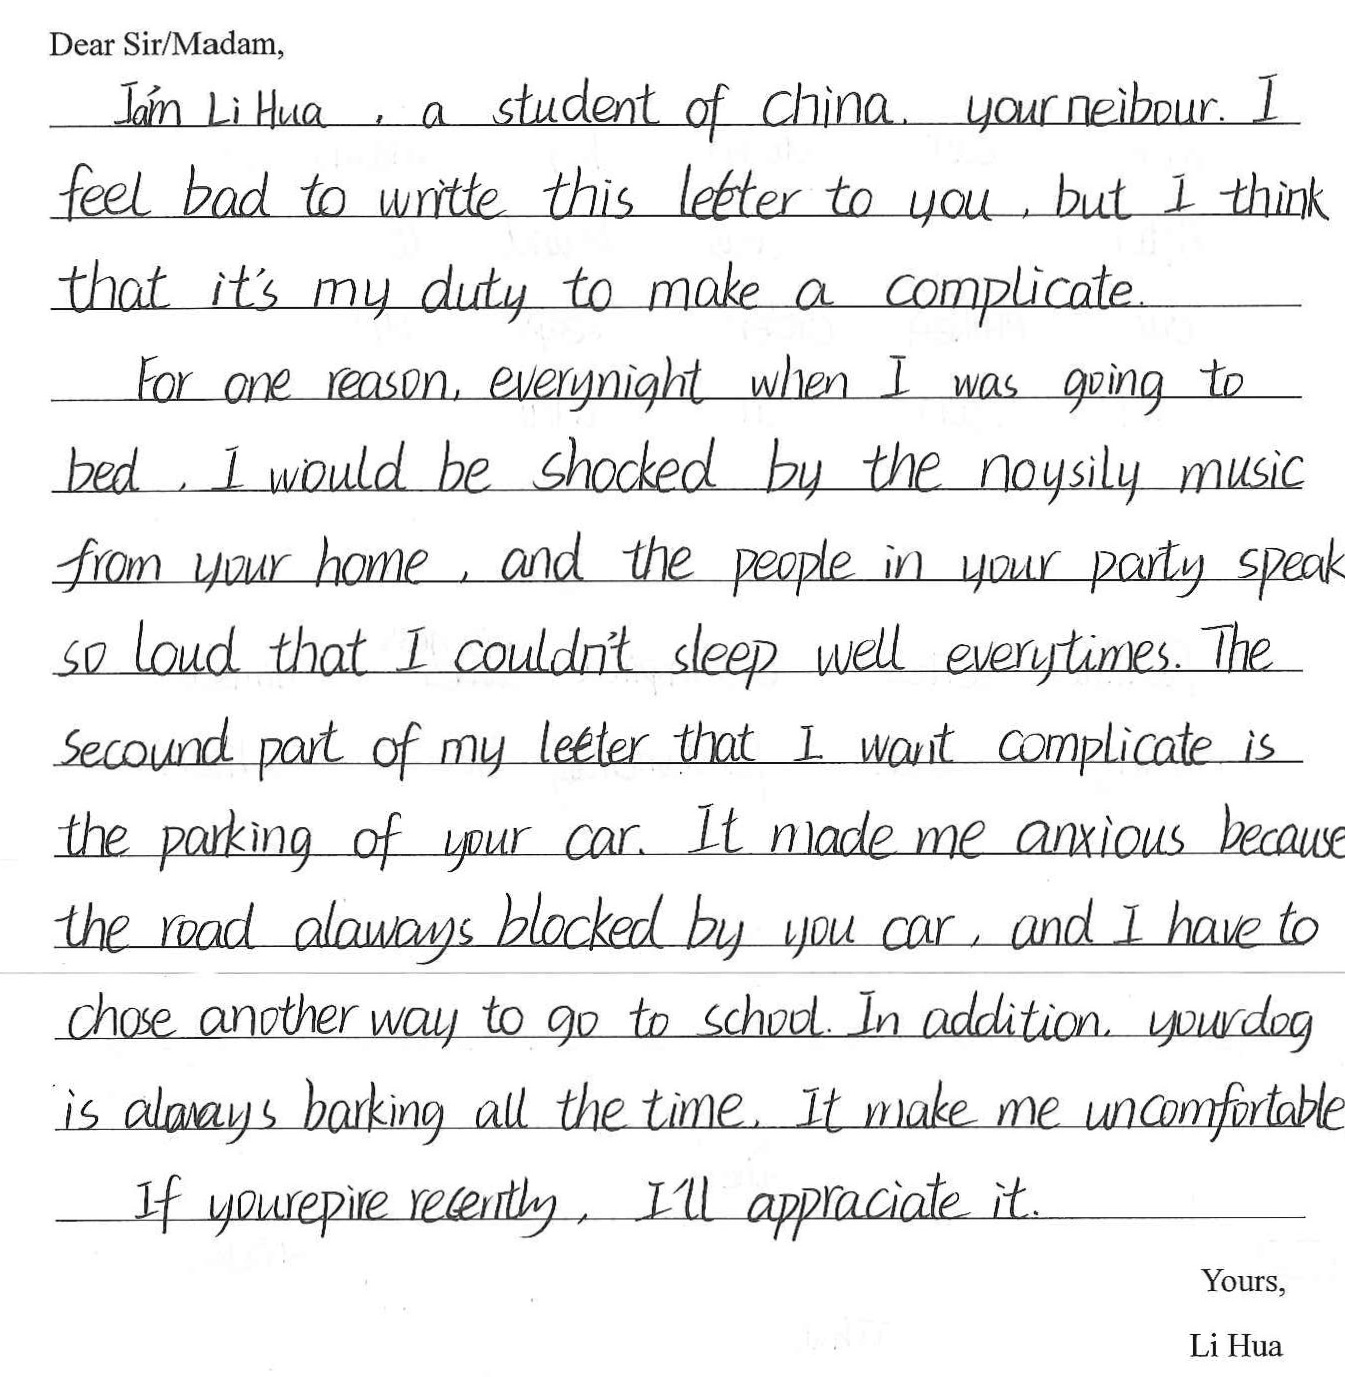 Dear Sir/Madam,
I'am Li Hua , a student of China. your neibour. I
feel bad to writte this letter to you , but I think
that it's my duty to make a complicate.
For one reason, everynight when I was going to
bed , I would be shocked by the noysily music
from your home , and the people in your party speak
so loud that I couldn't sleep well everytimes. The
secound part of my letter that I want complicate is
the parking of your car. It made me anxious because
the road alaways blocked by you car , and I have to
chose another way to go to school. In addition, your dog
is always barking all the time. It make me uncomfortable
If you repire recently, I'll appraciate it.
Yours,
Li Hua